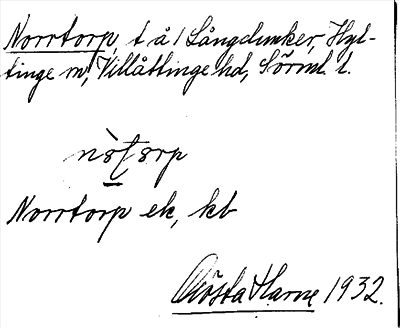 Norrtorp, t å 1 Långdunker, Hyl-
tinge sn, Villåttinge hd, Sörml. l.
Norrtorp ek, kb
Gösta Harne 1932.